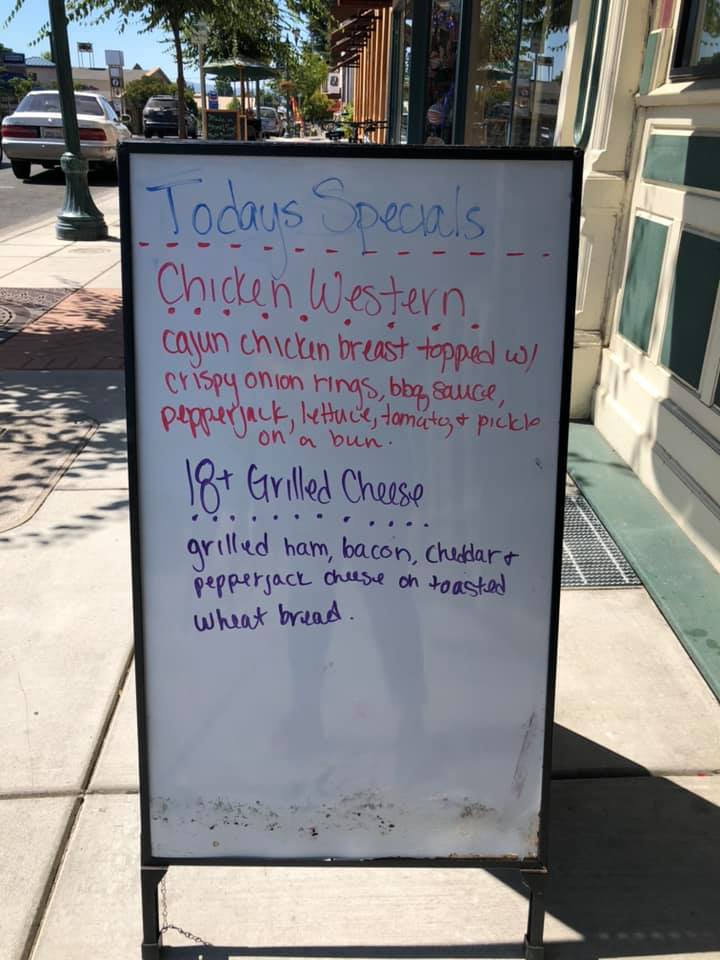 Todays Specials
Chicken Western
cajun chicken breast topped w/
crispy onion rings, bbq sauce,
pepperjack, lettuce, tomato, + pickle
on a bun.
18+ Grilled Cheese
grilled ham, bacon, cheddar +
pepperjack cheese on toasted
wheat bread.